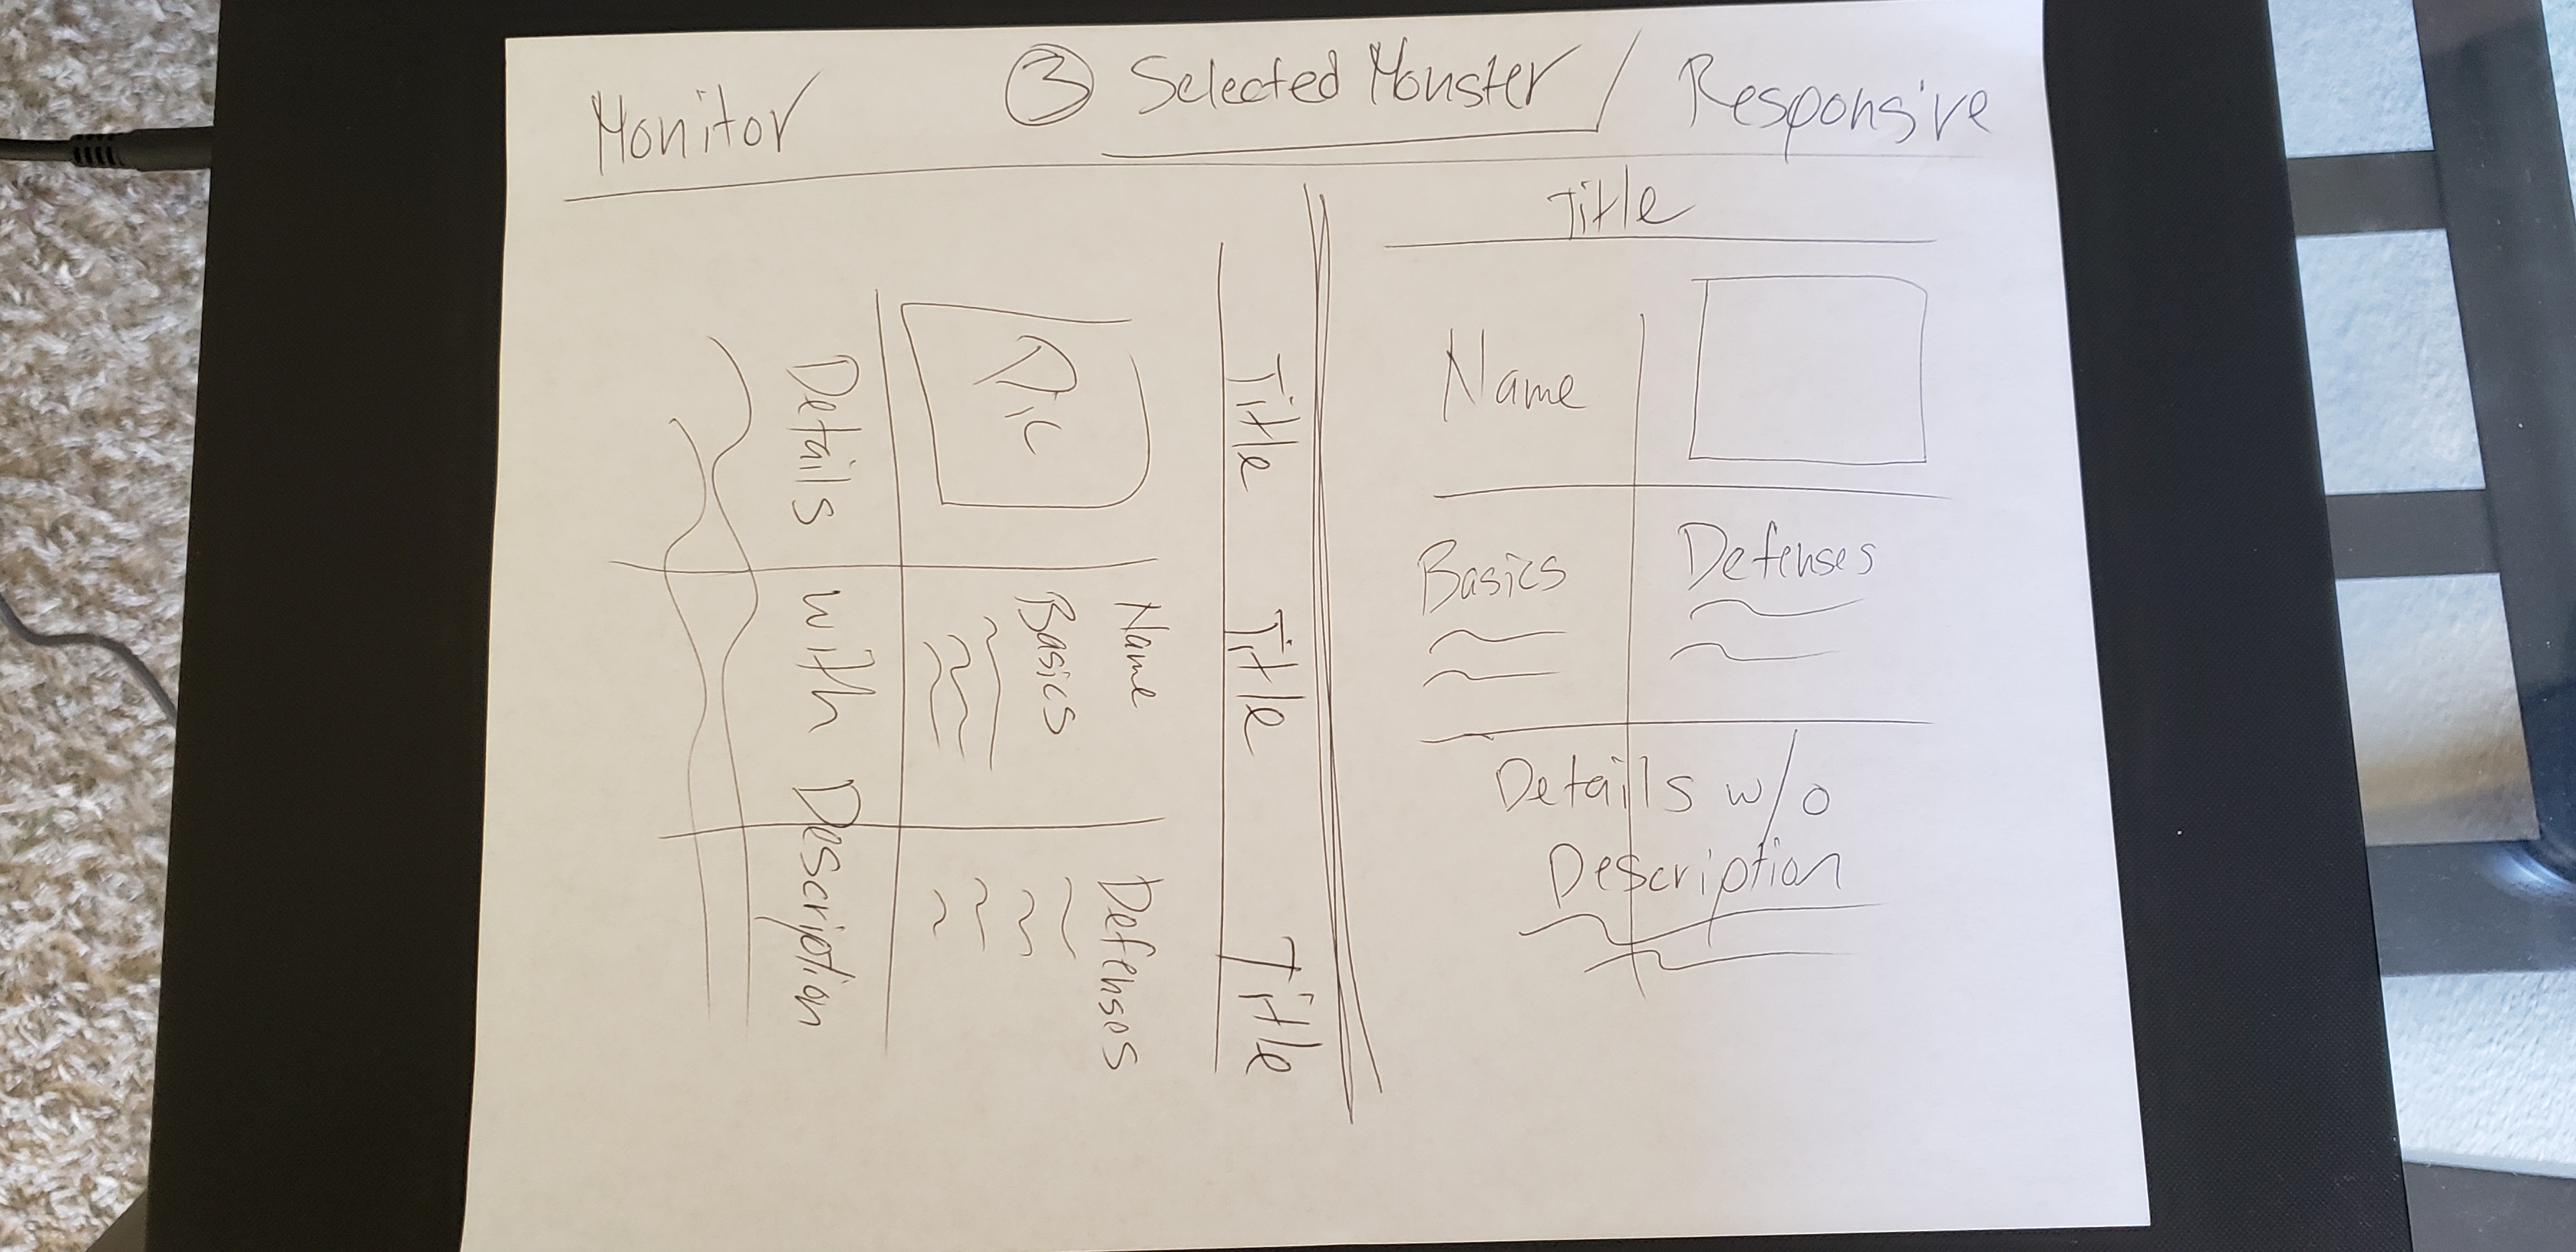 Monitor
③ Selected Monster /
Responsive
Title Title Title
Pic
Name
Basics
Defenses
Details with Description
Title
Name
Basics
Defenses
Details w/o
Description